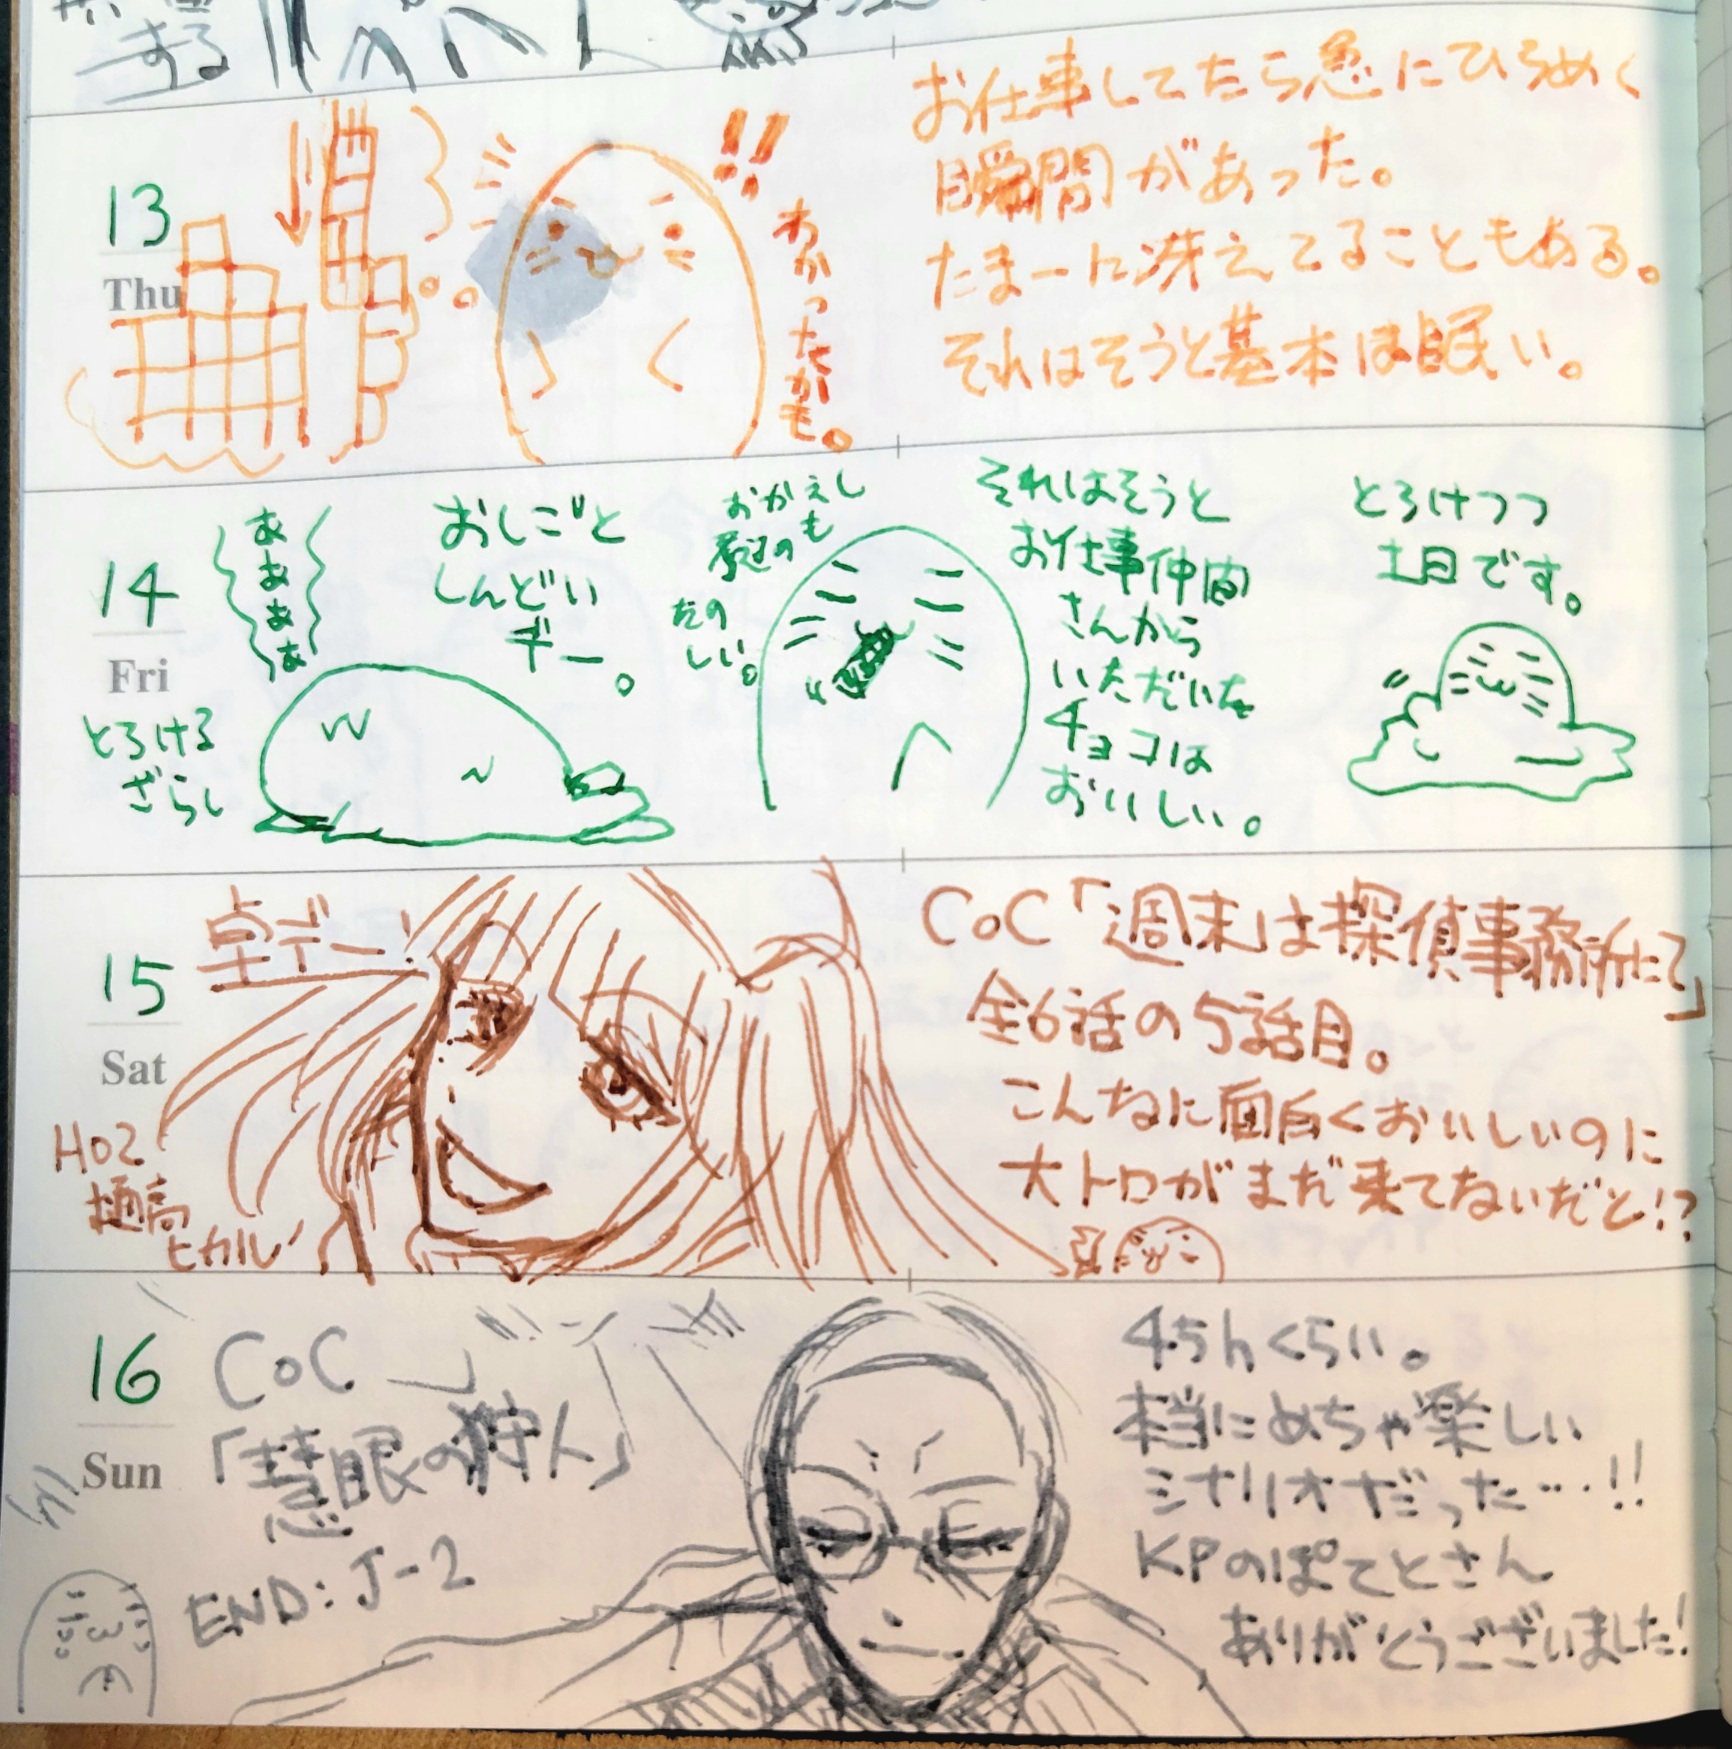 する
13
Thu
!!
わかったかも。
お仕事してたら急にひらめく
瞬間があった。
たまーに冴えてることもある。
それはそうと基本は眠い。
14
Fri
あぁぁぁ
とろける
ざらし
おしごと
しんどい
デー。
おかえし
選ぶのも
たの
しい。
それはそうと
お仕事仲間
さんから
いただいた
チョコは
おいしい。
とろけつつ
土日です。
15
Sat
卓デー!
HO2
樋高
ヒカル
CoC「週末は探偵事務所にて」
全6話の5話目。
こんなに面白くおいしいのに
大トロがまだ来てないだと!?
16
Sun
CoC
「慧眼の狩人」
END:J-2
45hくらい。
本当にめちゃ楽しい
シナリオだった…!!
KPのぽてとさん
ありがとうございました!